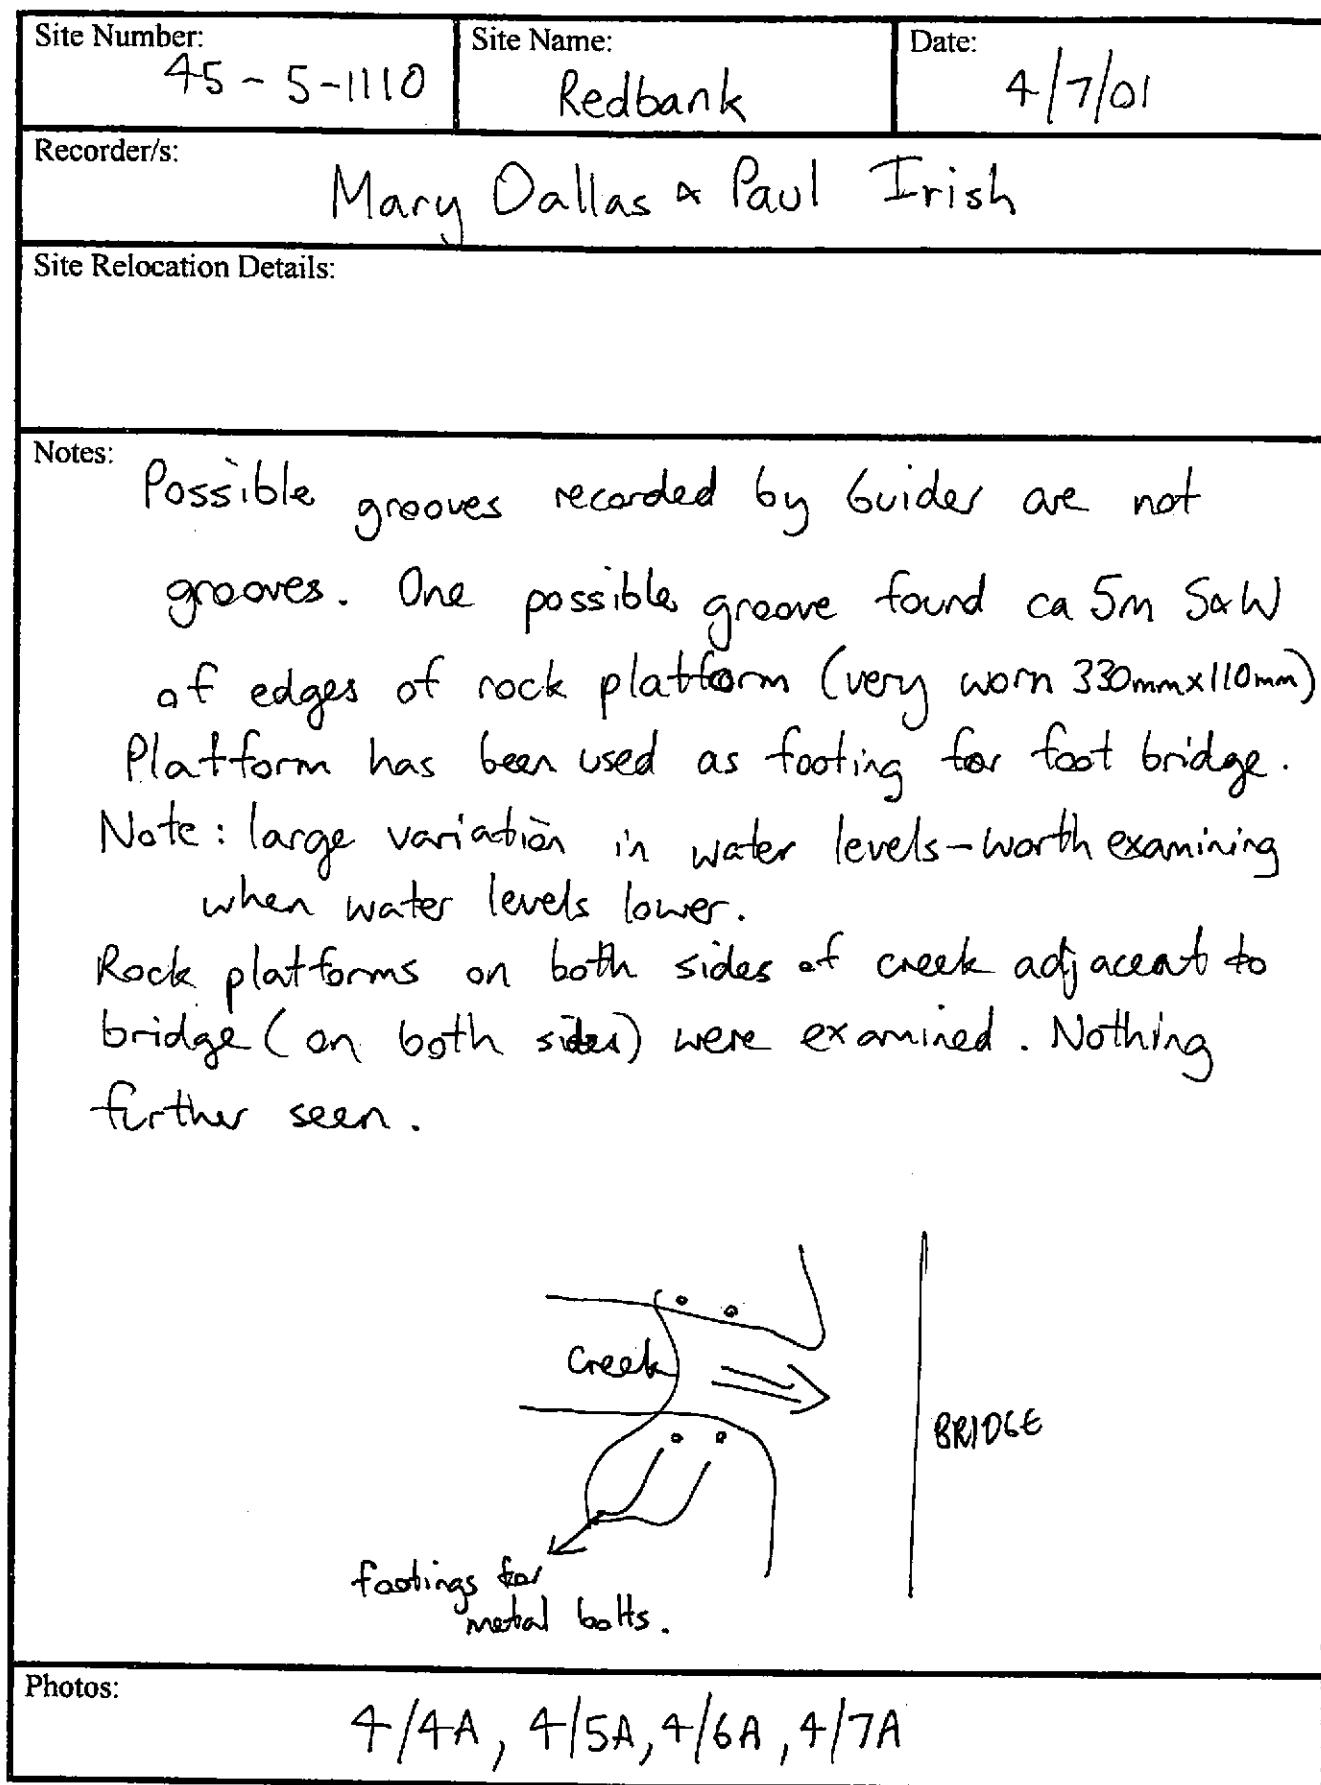 Site Number:
45-5-1110
Site Name:
Redbank
Date:
4/7/01
Recorder/s:
Mary Dallas & Paul Irish
Site Relocation Details:
Notes:
Possible grooves recorded by Guider are not
grooves. One possible groove found ca 5m S&W
of edges of rock platform (very worn 330mmx110mm)
Platform has been used as footing for foot bridge.
Note: large variation in water levels-worth examining
when water levels lower.
Rock platforms on both sides of creek adjacent to
bridge (on both sides) were examined. Nothing
further seen.
Creek
BRIDGE
footings for
metal bolts.
Photos:
4/4A, 4/5A, 4/6A, 4/7A